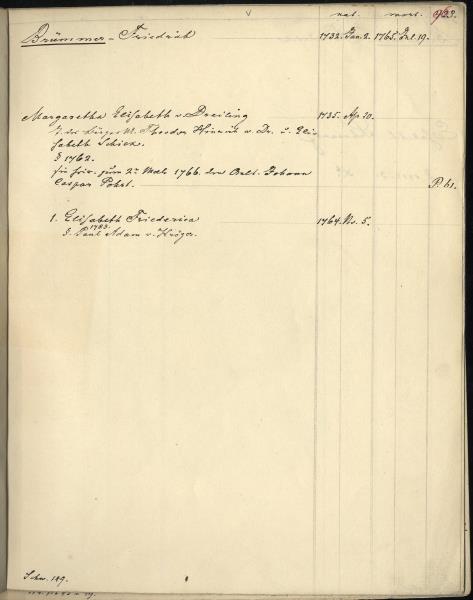 nat. mort. 923.
Brümmer - Friedrich 1732. Jan. 2. 1765. Oct. 19.
Margaretha Elisabeth v. Dreiling 1735. Ap. 20.
T. des Bürgerm. Theodor Hinrich v. Dr. u. Eli-
sabeth Schick.
§ 1762.
sie heir. zum 2n Male 1766. den Aelt. Johann
Caspar Pohrt. P. 61.
1. Elisabeth Friederica 1764. No. 5.
1783.
§. Paul Adam v. Kröger.
Schw. 149.